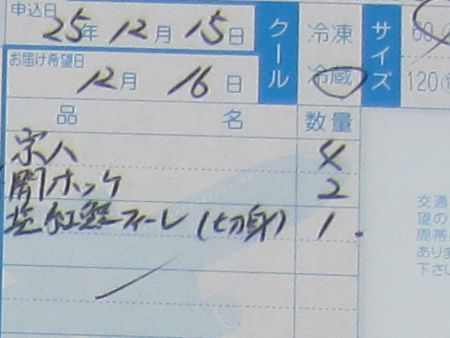 申込日
25年 12月 15日
お届け希望日
12月 16日
クール
冷凍
冷蔵
サイズ
60
120
品名 数量
宗八 4
開ホッケ 2
塩紅鮭フィーレ(切身) 1.
交通
望の
間帯
あります
下さい